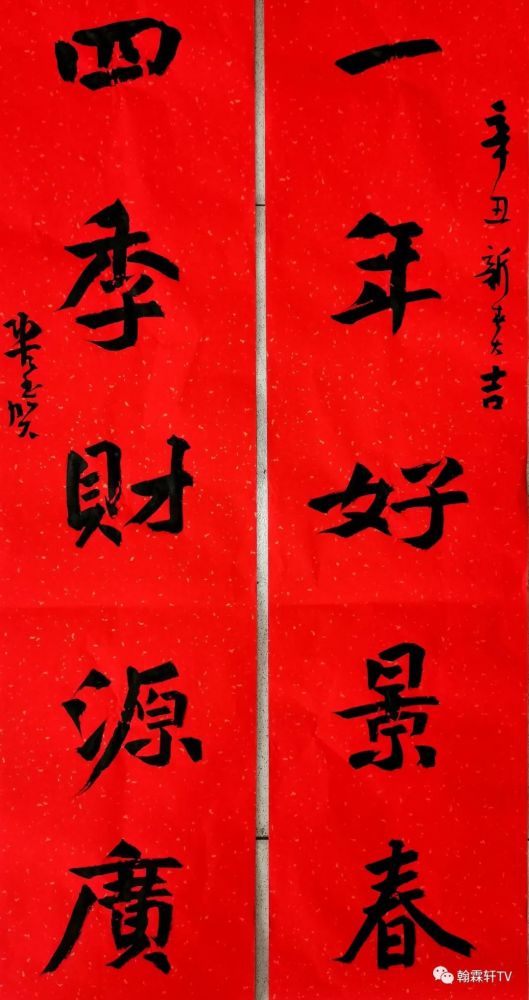 辛丑新春大吉
一年好景春
四季財源廣
翰霖轩TV